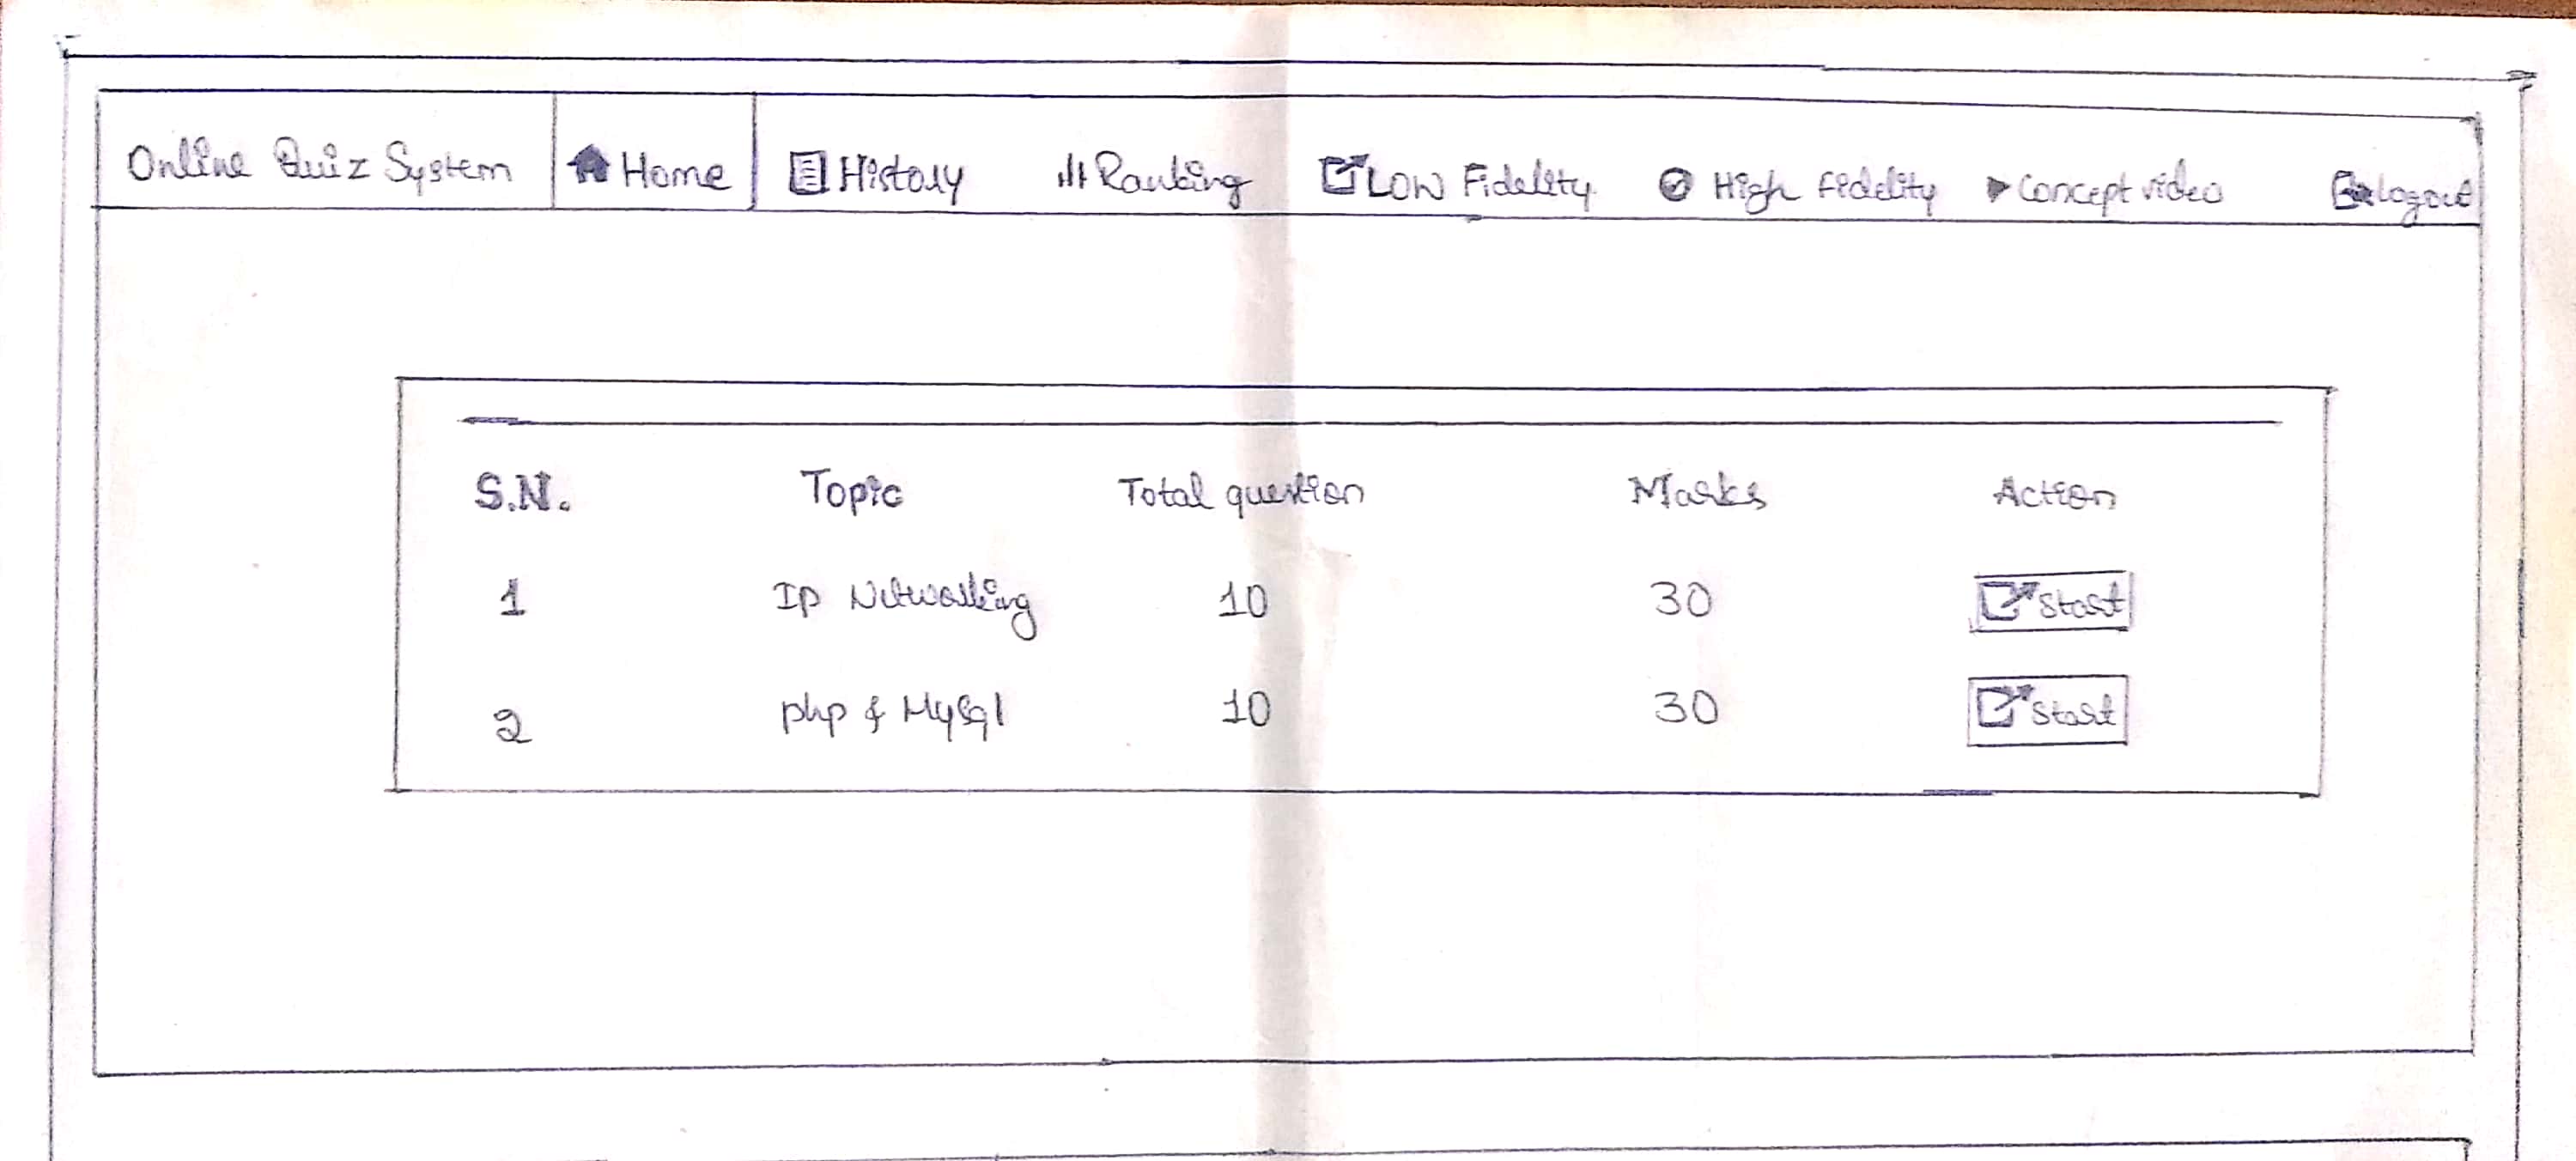 Online Quiz System Home History Ranking LOW Fidelity High Fidelity Concept video Logout
S.N. Topic Total question Marks Action
1 IP Networking 10 30 Start
2 php & Mysql 10 30 Start